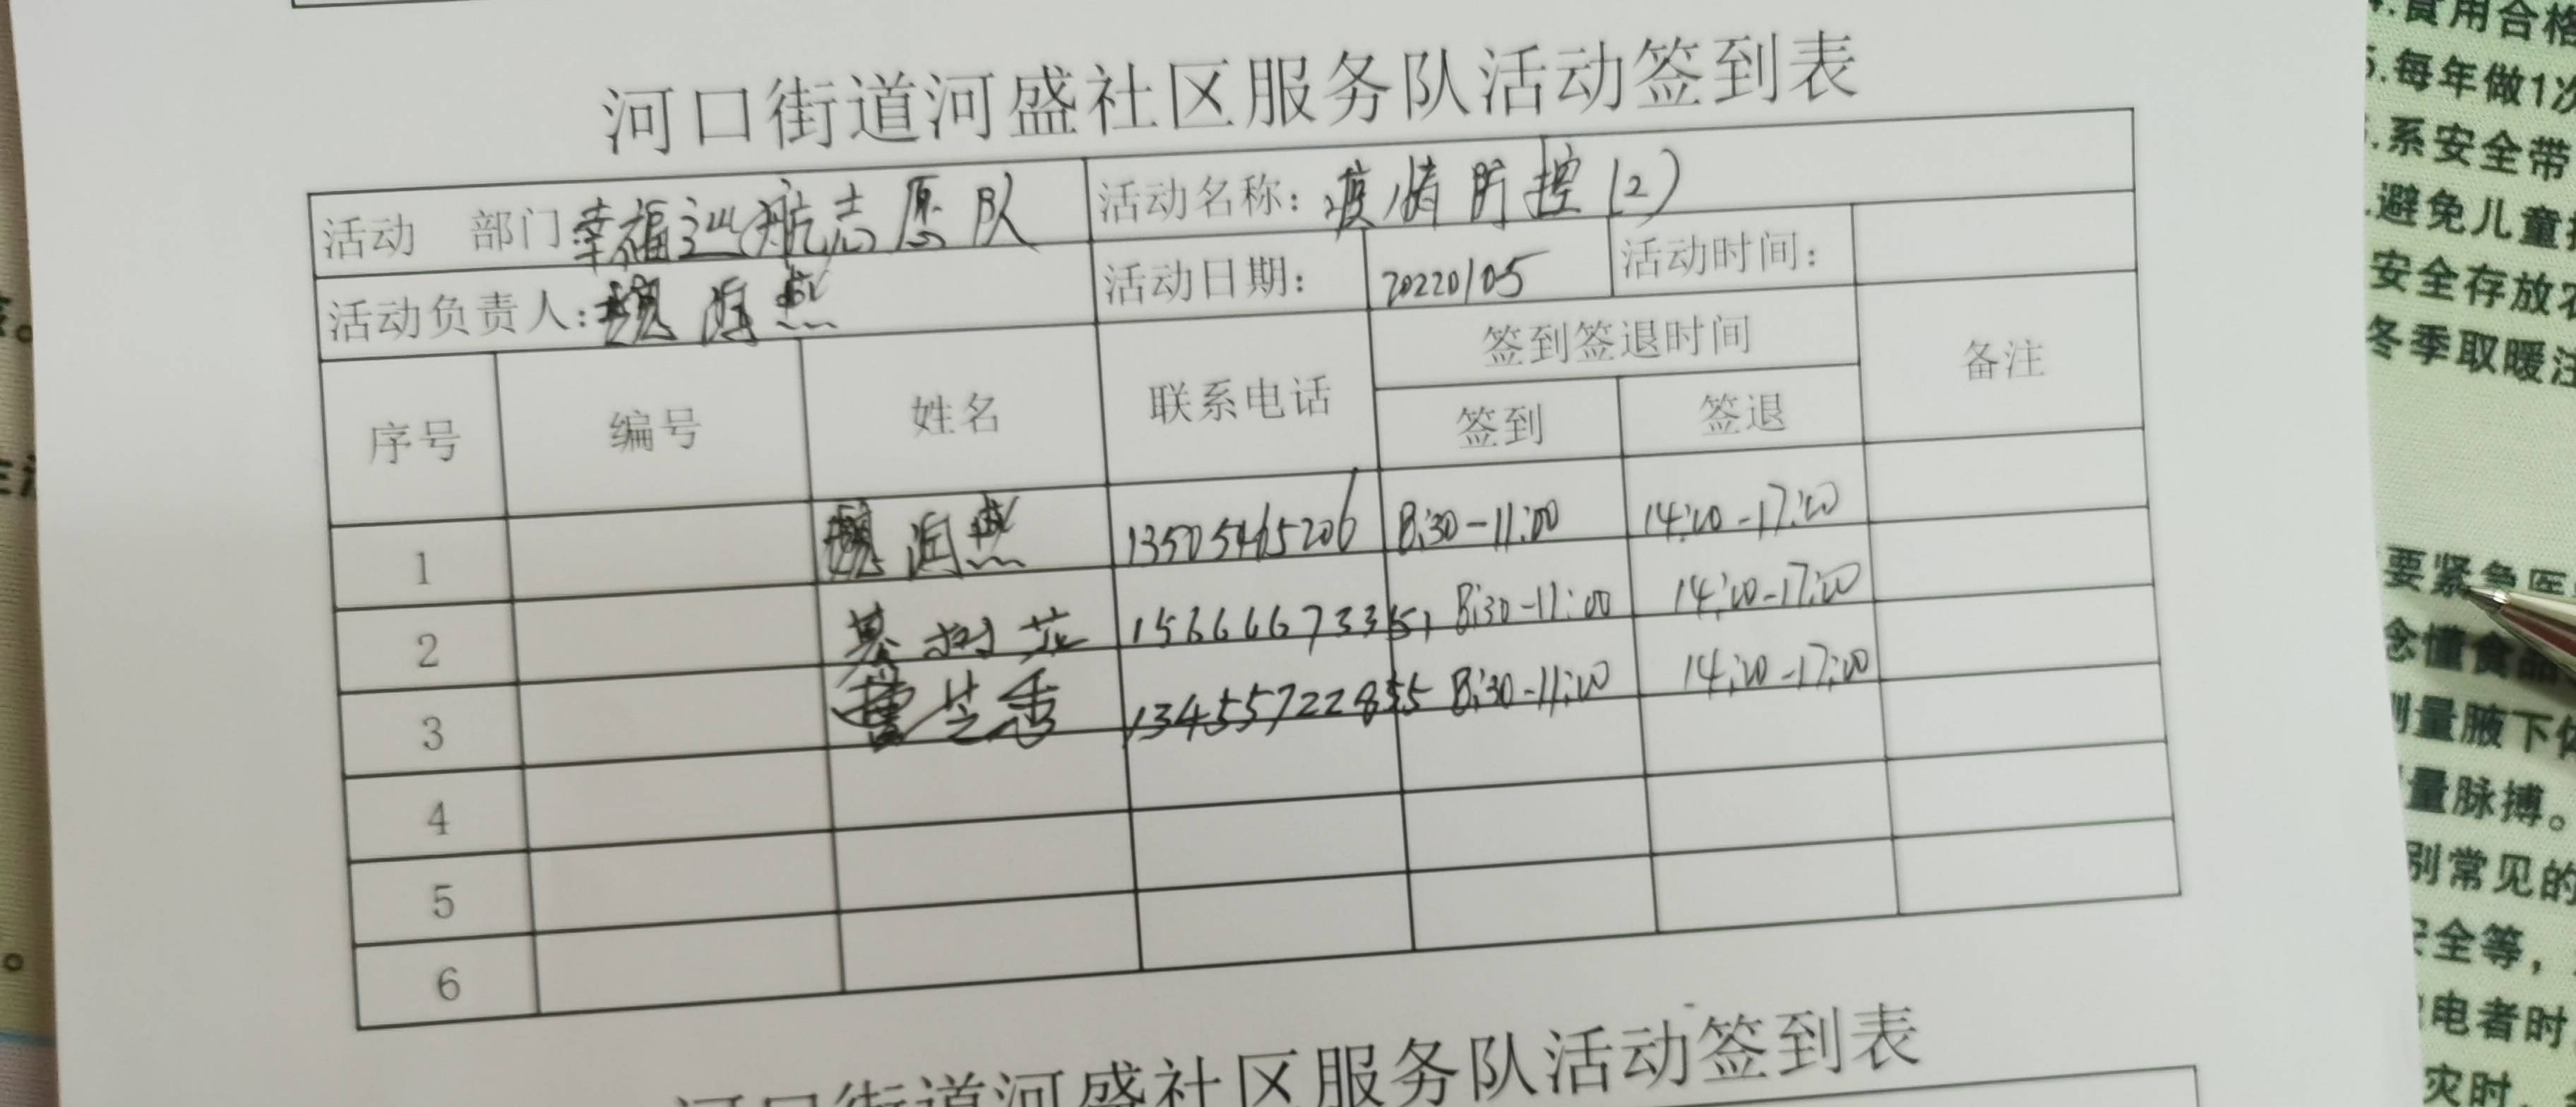 河口街道河盛社区服务队活动签到表
活动 部门 幸福巡航志愿队 活动名称：疫情防控(2)
活动负责人：魏海燕 活动日期： 20220105 活动时间：
序号 编号 姓名 联系电话 签到签退时间 备注
签到 签退
1 魏海燕 13505465206 8:30-11:00 14:00-17:00
2 綦树 15666673351 8:30-11:00 14:00-17:00
3 曹芝香 13455722855 8:30-11:00 14:00-17:00
4
5
6
河口街道河盛社区服务队活动签到表
.食用合格
5.每年做1次
.系安全带
.避免儿童
安全存放农
冬季取暖注
要紧急医
念懂食品
测量腋下体
量脉搏。
别常见的
安全等，
电者时
灾时，